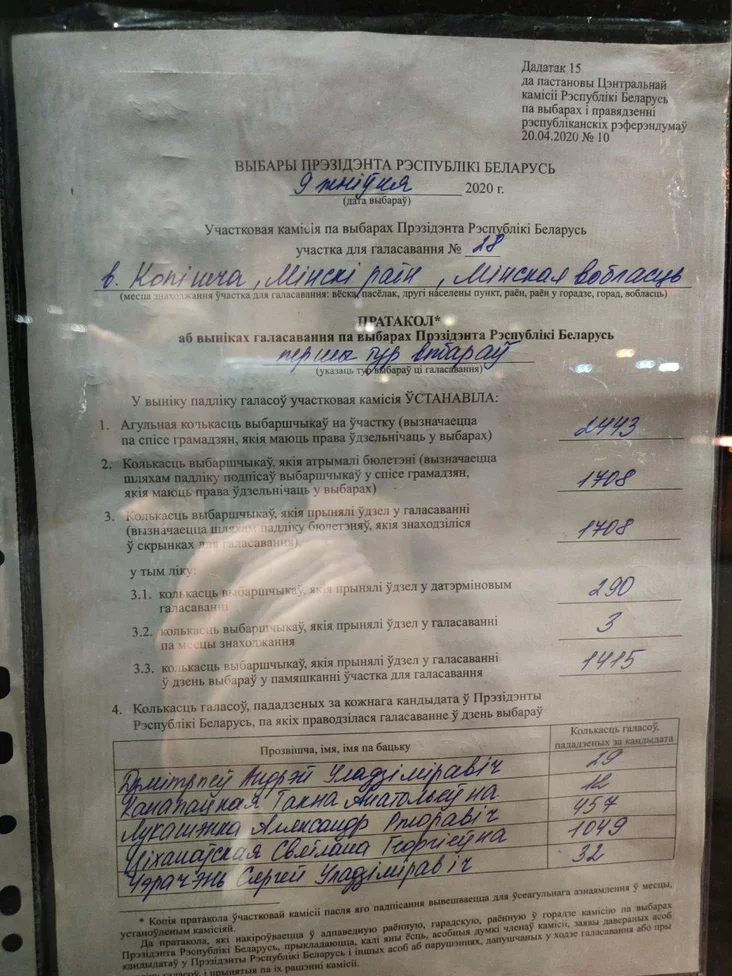 Дадатак 15
да пастановы Цэнтральнай
камісіі Рэспублікі Беларусь
па выбарах і правядзенні
рэспубліканскіх рэферэндумаў
20.04.2020 № 10
ВЫБАРЫ ПРЭЗІДЭНТА РЭСПУБЛІКІ БЕЛАРУСЬ
9 жніўня 2020 г.
(дата выбараў)
Участковая камісія па выбарах Прэзідэнта Рэспублікі Беларусь
участка для галасавання № 28
в. Копішча, Мінскі раён, Мінская вобласць
(месца знаходжання ўчастка для галасавання: вёска, пасёлак, другі населены пункт, раён, раён у горадзе, горад, вобласць)
ПРАТАКОЛ*
аб выніках галасавання па выбарах Прэзідэнта Рэспублікі Беларусь
першы тур выбараў
(указаць тур выбараў ці галасавання)
У выніку падліку галасоў участковая камісія ЎСТАНАВІЛА:
1. Агульная колькасць выбаршчыкаў на ўчастку (вызначаецца 2443
па спісе грамадзян, якія маюць права ўдзельнічаць у выбарах)
2. Колькасць выбаршчыкаў, якія атрымалі бюлетэні (вызначаецца
шляхам падліку подпісаў выбаршчыкаў у спісе грамадзян, 1708
якія маюць права ўдзельнічаць у выбарах)
3. Колькасць выбаршчыкаў, якія прынялі ўдзел у галасаванні
(вызначаецца шляхам падліку бюлетэняў, якія знаходзіліся 1708
ў скрынках для галасавання),
у тым ліку:
3.1. колькасць выбаршчыкаў, якія прынялі ўдзел у датэрміновым 290
галасаванні
3.2. колькасць выбаршчыкаў, якія прынялі ўдзел у галасаванні 3
па месцы знаходжання
3.3. колькасць выбаршчыкаў, якія прынялі ўдзел у галасаванні 1415
ў дзень выбараў у памяшканні ўчастка для галасавання
4. Колькасць галасоў, пададзеных за кожнага кандыдата ў Прэзідэнты
Рэспублікі Беларусь, па якіх праводзілася галасаванне ў дзень выбараў
Прозвішча, імя, імя па бацьку
Колькасць галасоў,
пададзеных за кандыдата
Дмітрыеў Андрэй Уладзіміравіч 29
Канапацкая Ганна Анатольеўна 12
Лукашэнка Аляксандр Рыгоравіч 457
Ціханоўская Святлана Георгіеўна 1049
Чэрачэнь Сяргей Уладзіміравіч 32
* Копія пратакола ўчастковай камісіі пасля яго падпісання вывешваецца для ўсеагульнага азнаямлення ў месцы,
устаноўленым камісіяй.
Да пратакола, які накіроўваецца ў адпаведную раённую, гарадскую, раённую ў горадзе камісію па выбарах
Прэзідэнта Рэспублікі Беларусь, прыкладаюцца, калі яны ёсць, асобныя думкі членаў камісіі, заявы давераных асоб
кандыдатаў у Прэзідэнты Рэспублікі Беларусь і іншых асоб аб парушэннях, дапушчаных у ходзе галасавання або пры
галасоў, і прынятыя па іх рашэнні камісіі.